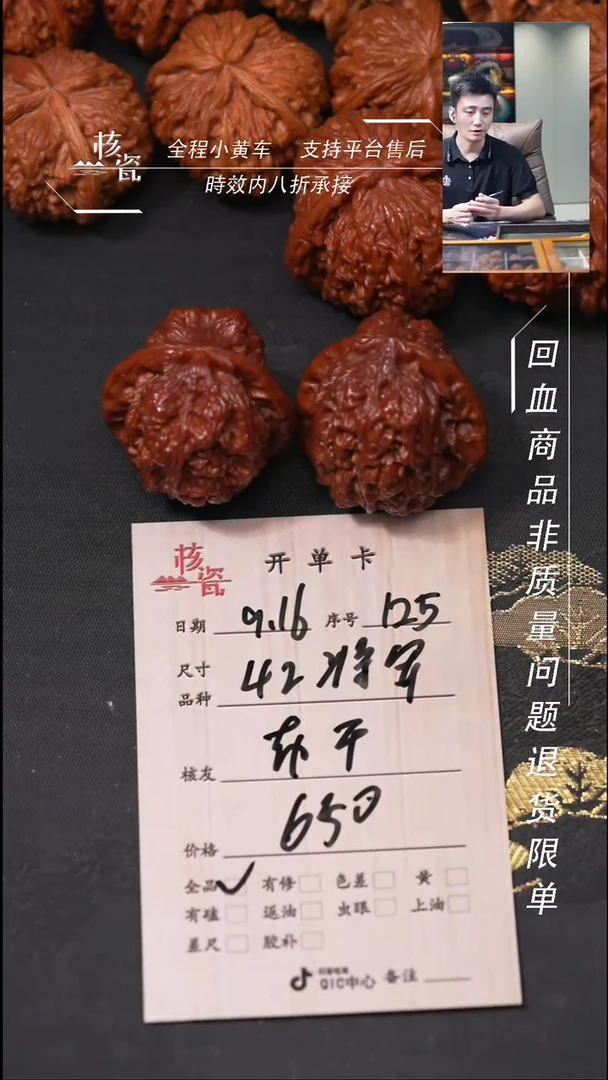 核瓷
全程小黄车 支持平台售后
時效内八折承接
回血商品非质量问题退货限单
核瓷
开单卡
日期 9.16 序号 125
尺寸
品种 42将军
核友
价格 650
全品 有修 色差 黄
有磕 返油 虫眼 上油
差尺 胶补
QIC中心 备注